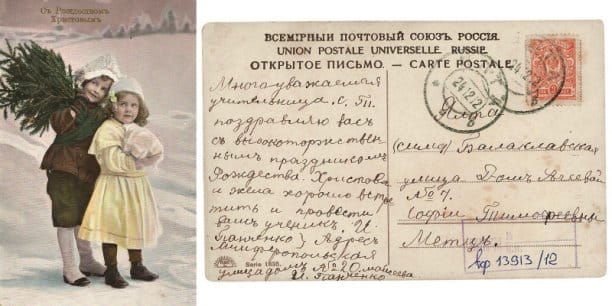 Съ Рождествомъ
Христовымъ
ВСЕМІРНЫЙ ПОЧТОВЫЙ СОЮЗЪ. РОССІЯ.
UNION POSTALE UNIVERSELLE. RUSSIE.
ОТКРЫТОЕ ПИСЬМО. — CARTE POSTALE.
Многоуважаемая
учительница, С. Ти.
поздравляю васъ
съ высокоторжествен
нымъ праздникомъ
Рождества Христова
и жела хорошо встре
тить и провести
вашъ ученикъ. И.
Ганченко Адресъ
улица домъ № 20
Ялта
(симф) Балаклавская
улица Домъ
№ 7.
Софіи Тимофеевны
Метцъ.
24.12.
24.12
Serie 1898.
вф 13913/12